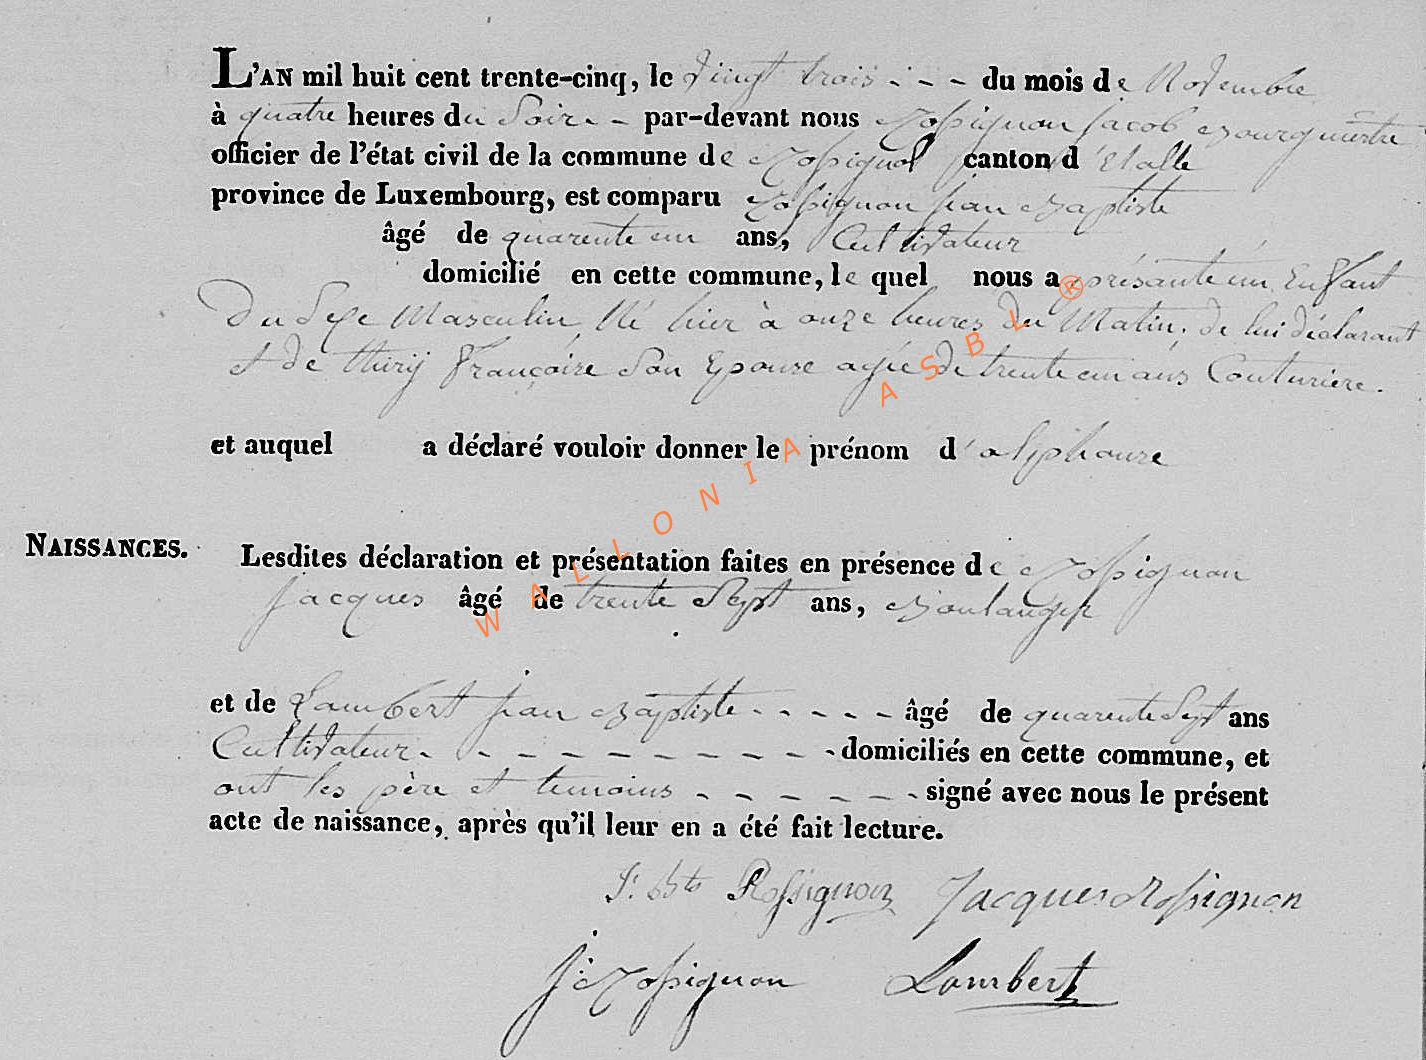 L'AN mil huit cent trente-cinq, le vingt trois - - - du mois de Novembre
à quatre heures du Soir - - par-devant nous Rossignon Jacob Bourguemestre
officier de l'état civil de la commune de Rossignol canton d'Etalle
province de Luxembourg, est comparu Rossignon Jean Baptiste
âgé de quarente un ans, Cultivateur
domicilié en cette commune, le quel nous a présenté un Enfant
Du Sexe Masculin Né hier à onze heures du Matin, de lui déclarant
et de thirij Françoise Son Epouse agée de trente un ans Couturiere.
et auquel a déclaré vouloir donner le prénom d'alphonze
NAISSANCES.
Lesdites déclaration et présentation faites en présence de Rossignon
Jacques âgé de trente Sept ans, Boulanger
et de Lambert Jean Baptiste - - - - - âgé de quarente Sept ans
Cultivateur - - - - - - - - - - domiciliés en cette commune, et
ont les père et temoins - - - - - - signé avec nous le présent
acte de naissance, après qu'il leur en a été fait lecture.
J. Bte Rossignon Jacques Rossignon
J: Rossignon Lambert
WALLONIA ASBL ®